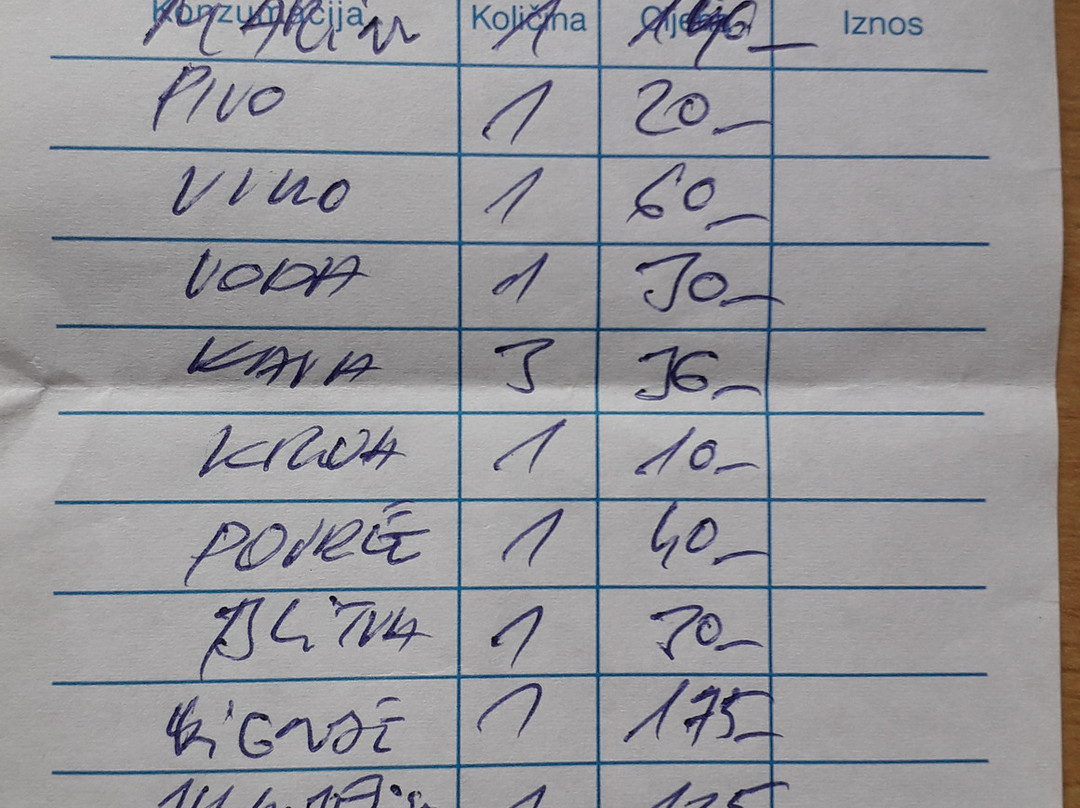 Konzumacija Količina Cijena Iznos
1
PIVO 1 20_
VINO 1 60_
VODA 1 30_
KAVA 3 36_
KRUH 1 10_
POVRĆE 1 40_
BLITVA 1 30_
1 175_
1